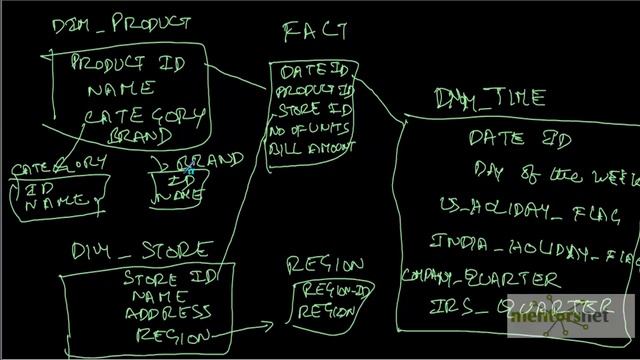 DIM_PRODUCT
PRODUCT ID
NAME
CATEGORY
BRAND
CATEGORY
ID
NAME
BRAND
ID
NAME
DIM_STORE
STORE ID
NAME
ADDRESS
REGION
FACT
DATE ID
PRODUCT ID
STORE ID
NO OF UNITS
BILL AMOUNT
REGION
REGION-ID
REGION
DIM_TIME
DATE ID
DAY of the WEEK
US_HOLIDAY_FLAG
INDIA_HOLIDAY_FLAG
COMPANY_QUARTER
IRS_QUARTER
mentorsnet